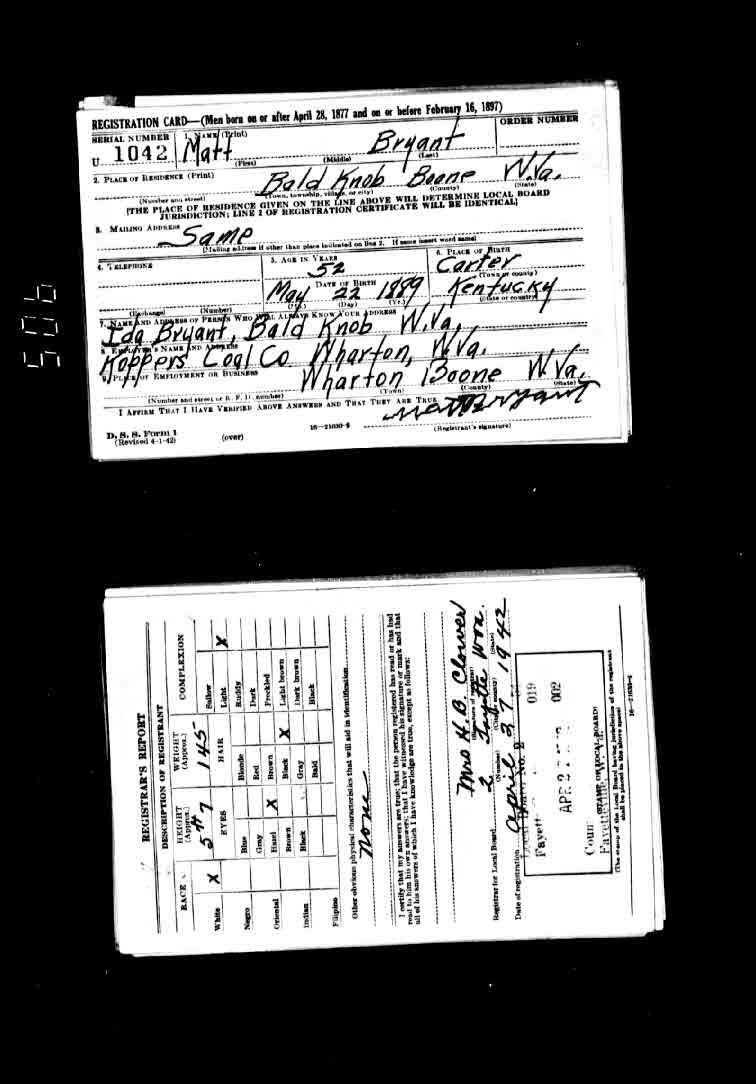 REGISTRATION CARD—(Men born on or after April 28, 1877 and on or before February 16, 1897)
SERIAL NUMBER
1. NAME (Print)
ORDER NUMBER
U 1042
Matt Bryant
(First) (Middle) (Last)
2. PLACE OF RESIDENCE (Print)
Bald Knob Boone W.Va.
(Number and street) (Town, township, village, or city) (County) (State)
[THE PLACE OF RESIDENCE GIVEN ON THE LINE ABOVE WILL DETERMINE LOCAL BOARD
JURISDICTION; LINE 2 OF REGISTRATION CERTIFICATE WILL BE IDENTICAL]
3. MAILING ADDRESS
Same
[Mailing address if other than place indicated on line 2. If same insert word same]
4. TELEPHONE
5. AGE IN YEARS
52
DATE OF BIRTH
May 22 1889
(Mo.) (Day) (Yr.)
6. PLACE OF BIRTH
Carter
(Town or county)
Kentucky
(State or country)
(Exchange) (Number)
7. NAME AND ADDRESS OF PERSON WHO WILL ALWAYS KNOW YOUR ADDRESS
Ida Bryant, Bald Knob W.Va,
8. EMPLOYER'S NAME AND ADDRESS
Koppers Coal Co Wharton, W.Va.
9. PLACE OF EMPLOYMENT OR BUSINESS
Wharton Boone W.Va.
(Number and street or R. F. D. number) (Town) (County) (State)
I AFFIRM THAT I HAVE VERIFIED ABOVE ANSWERS AND THAT THEY ARE TRUE.
Matt Bryant
D. S. S. Form 1
(Revised 4-1-42)
(over)
16—21630-2
(Registrant's signature)
906
REGISTRAR'S REPORT
DESCRIPTION OF REGISTRANT
RACE
HEIGHT (Approx.)
WEIGHT (Approx.)
COMPLEXION
5 ft 7
145
EYES HAIR
White X
Negro
Oriental
Indian
Filipino
Blue
Gray
Hazel X
Brown
Black
Blonde
Red
Brown
Black X
Gray
Bald
Sallow
Light X
Ruddy
Dark
Freckled
Light brown
Dark brown
Black
Other obvious physical characteristics that will aid in identification
None
I certify that my answers are true; that the person registered has read or has had
read to him his own answers; that I have witnessed his signature or mark and that
all of his answers of which I have knowledge are true, except as follows:
Mrs H. B.
(Signature of registrar)
Registrar for Local Board
2 Fayette
(Number) (City or county) (State)
Date of registration April 27 1942
Local Board No. 2 019
Fayette 002
APR 27
Fayetteville, W.
(STAMP OF LOCAL BOARD)
(The stamp of the Local Board having jurisdiction of the registrant
shall be placed in the above space)